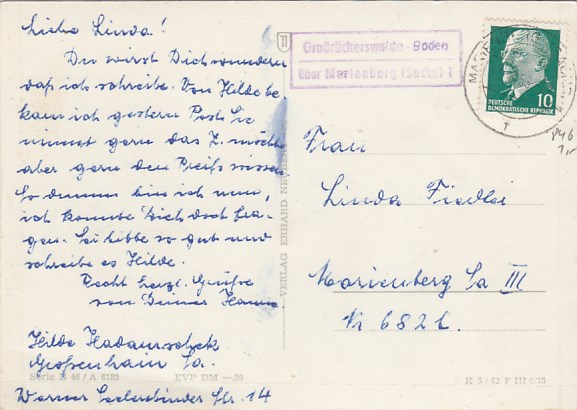 Liebe Linda!
Du wirst Dich wundern
daß ich schreibe. Von Hilde be
kam ich gestern Post. Sie
nimmt gern das Z. möchte
aber gern den Preis wissen.
So dumm bin ich nun,
ich konnte Dich doch fra-
gen. Sei so gut und
schreibe es Hilde.
Recht herzl. Grüße
von Deiner Hanne.
Hilde
Großenhain Sa.
Werner Str. 14
Serie B 46 / A 6182 EVP DM —.20
VERLAG ERHARD
Großrückerswalde-Boden
über Marienberg (Sachs) 1
DEUTSCHE
DEMOKRATISCHE REPUBLIK
10
Frau
Linda Fiedler
Marienberg Sa III
Nr 682 L
K 5/62 F III 6/75